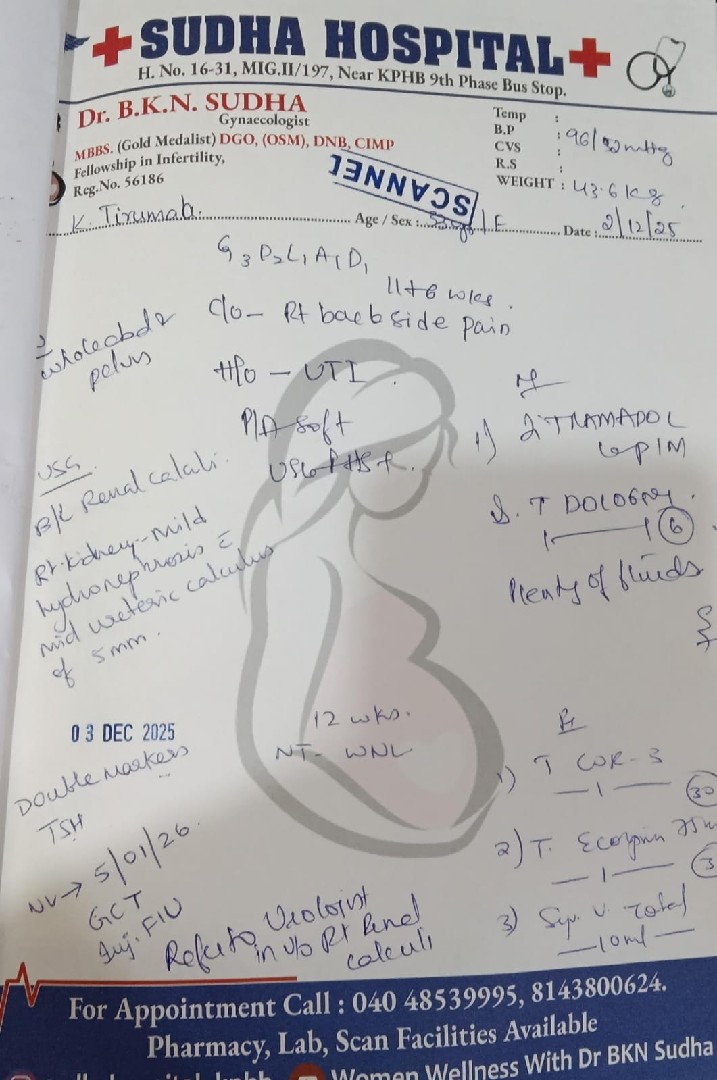 SUDHA HOSPITAL
H. No. 16-31, MIG.II/197, Near KPHB 9th Phase Bus Stop.
Dr. B.K.N. SUDHA
Gynaecologist
MBBS. (Gold Medalist) DGO, (OSM), DNB, CIMP
Fellowship in Infertility,
Reg.No. 56186
Temp :
B.P : 96/
CVS :
R.S :
WEIGHT : 43.6 kg.
SCANNED
K. Tirumala. Age / Sex : /F Date : 2/12/25
G3 P2 L1 A1 D1
11+6 wks.
c/o - Rt back side pain
whole abd &
pelvis
H/o - UTI
P/A soft
1) TRAMADOL
IM
USG
B/L Renal calculi.
Rt. Kidney - mild
hydronephrosis c
mid ureteric calculus
of 5mm.
T DOLO 650
6
Plenty of fluids
03 DEC 2025
12 wks.
NT - WNL
Double Markers
TSH
NV → 5/01/26
GCT
Inj. FLU
Refer to Urologist
in v/o Rt Renal
calculi
1) T
— 1 — 30
2) T. Ecosprin 75m
— 1 —
3) Syp.
— 10ml —
For Appointment Call : 040 48539995, 8143800624.
Pharmacy, Lab, Scan Facilities Available
Women Wellness With Dr BKN Sudha